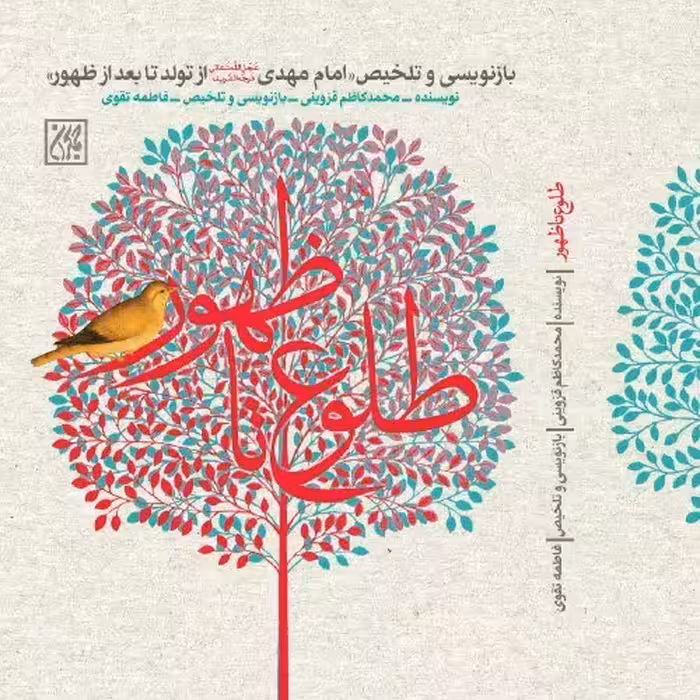 بازنویسی و تلخیص «امام مهدی عجل الله تعالی فرجه الشریف از تولد تا بعد از ظهور»
نویسنده ـ محمدکاظم قزوینی ـ بازنویسی و تلخیص ـ فاطمه تقوی
طلوع تا ظهور
طلوع تا ظهور | نویسنده | محمدکاظم قزوینی | بازنویسی و تلخیص | فاطمه تقوی